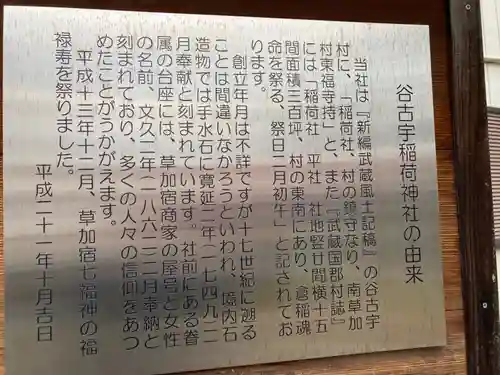 谷古宇稲荷神社の由来
当社は『新編武蔵風土記稿』の谷古宇
村に、「稲荷社、村の鎮守なり、南草加
村東福寺持」と、また『武蔵国郡村誌』
には「稲荷社 平社 社地竪廿間横十五
間面積三百坪、村の東南にあり、倉稲魂
命を祭る、祭日二月初午」と記されてお
ります。
創立年月は不詳ですが十七世紀に遡る
ことは間違いなかろうといわれ、境内石
造物では手水石に寛延二年(一七四九)二
月奉献と刻まれています。社前にある眷
属の台座には、草加宿商家の屋号と女性
の名前、文久二年(一八六二)二月奉納と
刻まれており、多くの人々の信仰をあつ
めたことがうかがえます。
平成十三年十二月、草加宿七福神の福
禄寿を祭りました。
平成二十一年十月吉日